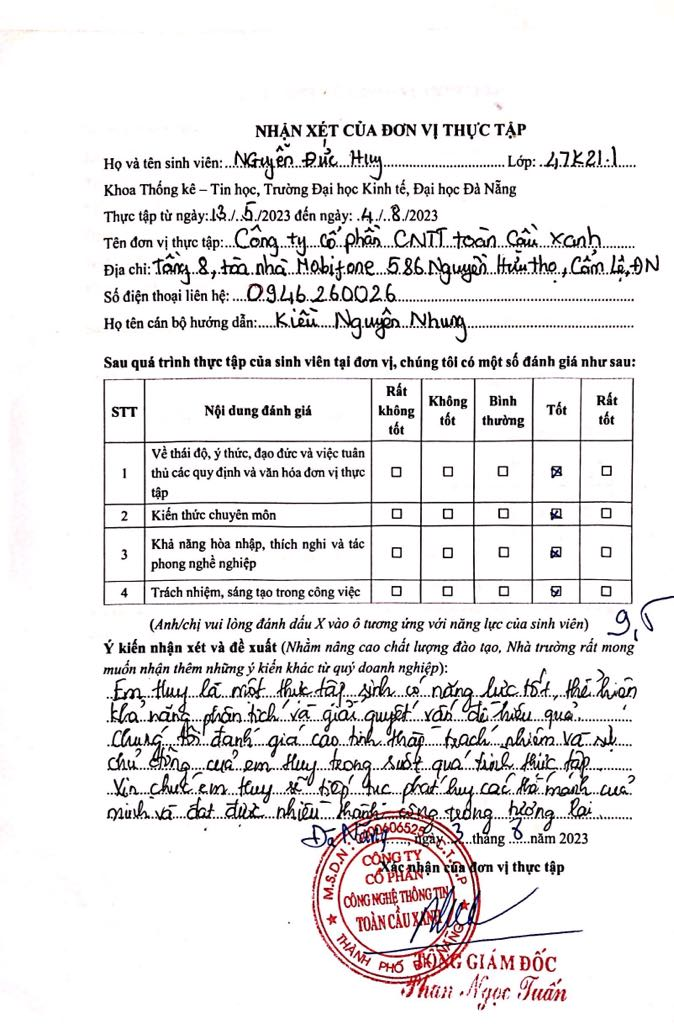 NHẬN XÉT CỦA ĐƠN VỊ THỰC TẬP
Họ và tên sinh viên: Nguyễn Đức Huy Lớp: 47K21.1
Khoa Thống kê – Tin học, Trường Đại học Kinh tế, Đại học Đà Nẵng
Thực tập từ ngày: 13/5/2023 đến ngày: 4/8/2023
Tên đơn vị thực tập: Công ty cổ phần CNTT toàn cầu xanh
Địa chỉ: Tầng 8, tòa nhà Mobifone 586 Nguyễn Hữu Thọ, Cẩm Lệ, ĐN
Số điện thoại liên hệ: 0946260026
Họ tên cán bộ hướng dẫn: Kiều Nguyên Nhung
Sau quá trình thực tập của sinh viên tại đơn vị, chúng tôi có một số đánh giá như sau:
STT Nội dung đánh giá Rất không tốt Không tốt Bình thường Tốt Rất tốt
1 Về thái độ, ý thức, đạo đức và việc tuân
thủ các quy định và văn hóa đơn vị thực
tập ☐ ☐ ☐ ☒ ☐
2 Kiến thức chuyên môn ☐ ☐ ☐ ☒ ☐
3 Khả năng hòa nhập, thích nghi và tác
phong nghề nghiệp ☐ ☐ ☐ ☒ ☐
4 Trách nhiệm, sáng tạo trong công việc ☐ ☐ ☐ ☒ ☐
(Anh/chị vui lòng đánh dấu X vào ô tương ứng với năng lực của sinh viên)
9,5
Ý kiến nhận xét và đề xuất (Nhằm nâng cao chất lượng đào tạo, Nhà trường rất mong
muốn nhận thêm những ý kiến khác từ quý doanh nghiệp):
Em Huy là một thực tập sinh có năng lực tốt, thể hiện
khả năng phân tích và giải quyết vấn đề hiệu quả.
Chúng tôi đánh giá cao tinh thần trách nhiệm và sự
chủ động của em Huy trong suốt quá trình thực tập.
Xin chúc em Huy sẽ tiếp tục phát huy các thế mạnh của
mình và đạt được nhiều thành công trong tương lai.
Đà Nẵng, ngày 3 tháng 8 năm 2023
Xác nhận của đơn vị thực tập
M.S.D.N: 0400606525 C.T.C.P
CÔNG TY
CỔ PHẦN
CÔNG NGHỆ THÔNG TIN
TOÀN CẦU XANH
THÀNH PHỐ ĐÀ NẴNG
TỔNG GIÁM ĐỐC
Phan Ngọc Tuấn